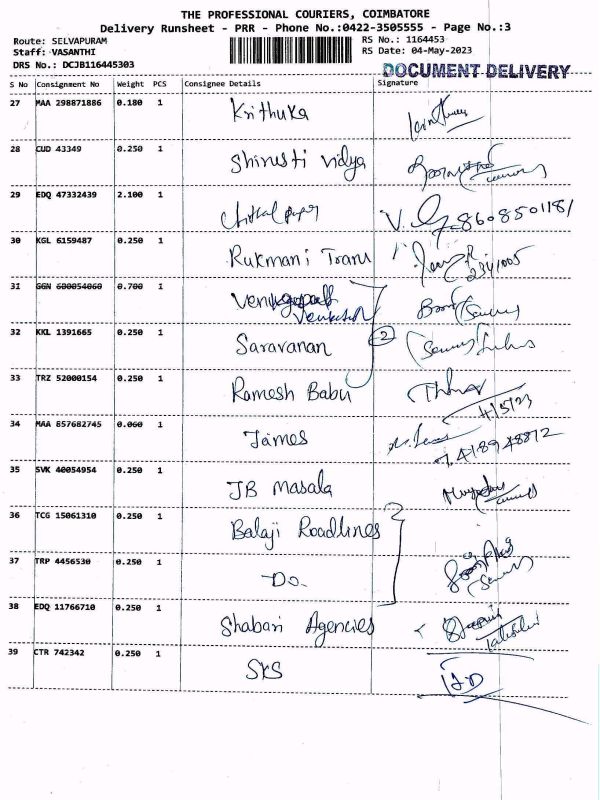 THE PROFESSIONAL COURIERS, COIMBATORE
Delivery Runsheet - PRR - Phone No.:0422-3505555 - Page No.:3
Route: SELVAPURAM RS No.: 1164453
Staff: VASANTHI RS Date: 04-May-2023
DRS No.: DCJB116445303 DOCUMENT DELIVERY
S No Consignment No Weight PCS Consignee Details Signature
27 MAA 298871886 0.180 1 Krithuka
28 CUD 43349 0.250 1 Shirusti Vidya
29 EDQ 47332439 2.100 1 V. 8608501181
30 KGL 6159487 0.250 1 Rukmani Trans 2341005
31 GGN 600054060 0.700 1 Venugopal Venkatesh
32 KKL 1391665 0.250 1 Saravanan 2
33 TRZ 52000154 0.250 1 Ramesh Babu 4/5/23
34 MAA 857682745 0.060 1 James 7418948872
35 SVK 40054954 0.250 1 JB Masala
36 TCG 15061310 0.250 1 Balaji Roadlines
37 TRP 4456530 0.250 1 -Do.
38 EDQ 11766710 0.250 1 Shabari Agencies
39 CTR 742342 0.250 1 SKS